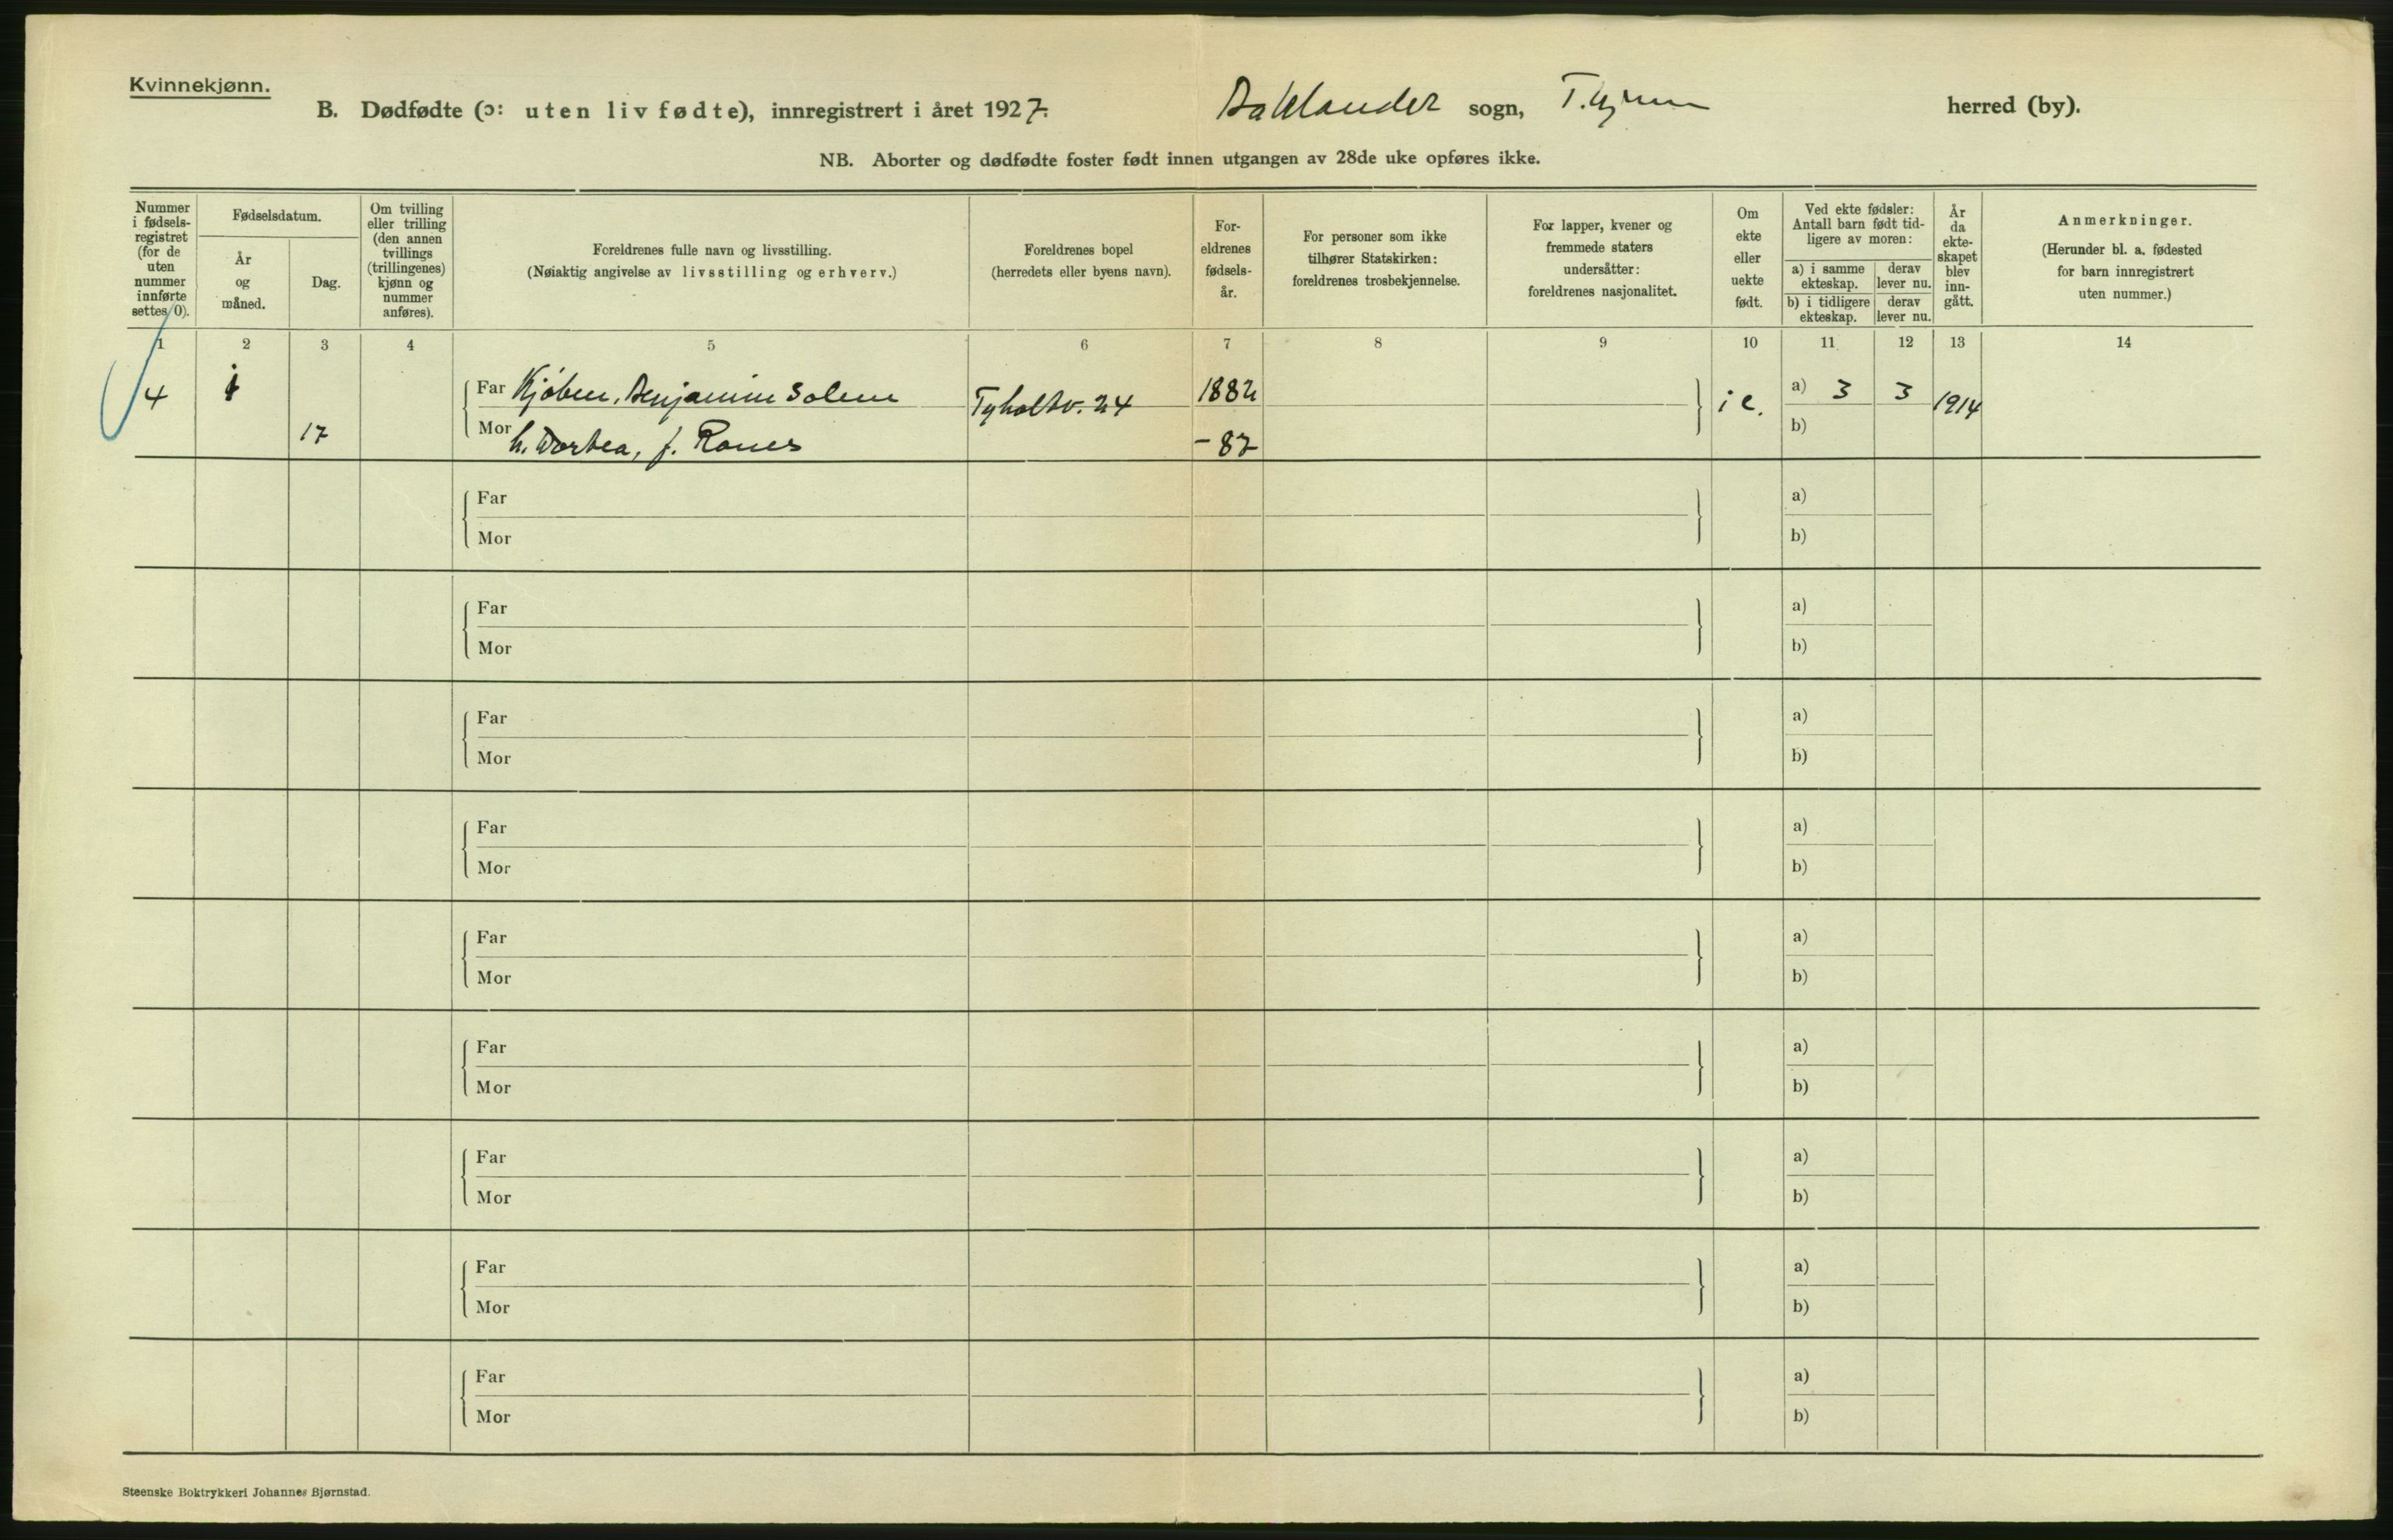 Kvinnekjønn.
B. Dødfødte (ɔ: uten liv fødte), innregistrert i året 1927. Baklandet sogn, T.hjem herred (by).
NB. Aborter og dødfødte foster født innen utgangen av 28de uke opføres ikke.
Nummer i fødsels-registret (for de uten nummer innførte settes 0).
Fødselsdatum.
År og måned.
Dag.
Om tvilling eller trilling (den annen tvillings (trillingenes) kjønn og nummer anføres).
Foreldrenes fulle navn og livsstilling.
(Nøiaktig angivelse av livsstilling og erhverv.)
Foreldrenes bopel
(herredets eller byens navn).
For-eldrenes fødsels-år.
For personer som ikke tilhører Statskirken: foreldrenes trosbekjennelse.
For lapper, kvener og fremmede staters undersåtter: foreldrenes nasjonalitet.
Om ekte eller uekte født.
Ved ekte fødsler: Antall barn født tid-ligere av moren:
a) i samme ekteskap. derav lever nu.
b) i tidligere ekteskap. derav lever nu.
År da ekte-skapet blev inn-gått.
Anmerkninger.
(Herunder bl. a. fødested for barn innregistrert uten nummer.)
1 2 3 4 5 6 7 8 9 10 11 12 13 14
4 Far Kjøbm. Benjamin Solem Tyholtv. 24 1882 i e. a) 3 3 1914
17 Mor h. Dorthea, f. Rones - 87 b)
Far a)
Mor b)
Far a)
Mor b)
Far a)
Mor b)
Far a)
Mor b)
Far a)
Mor b)
Far a)
Mor b)
Far a)
Mor b)
Far a)
Mor b)
Far a)
Mor b)
Steenske Boktrykkeri Johannes Bjørnstad.